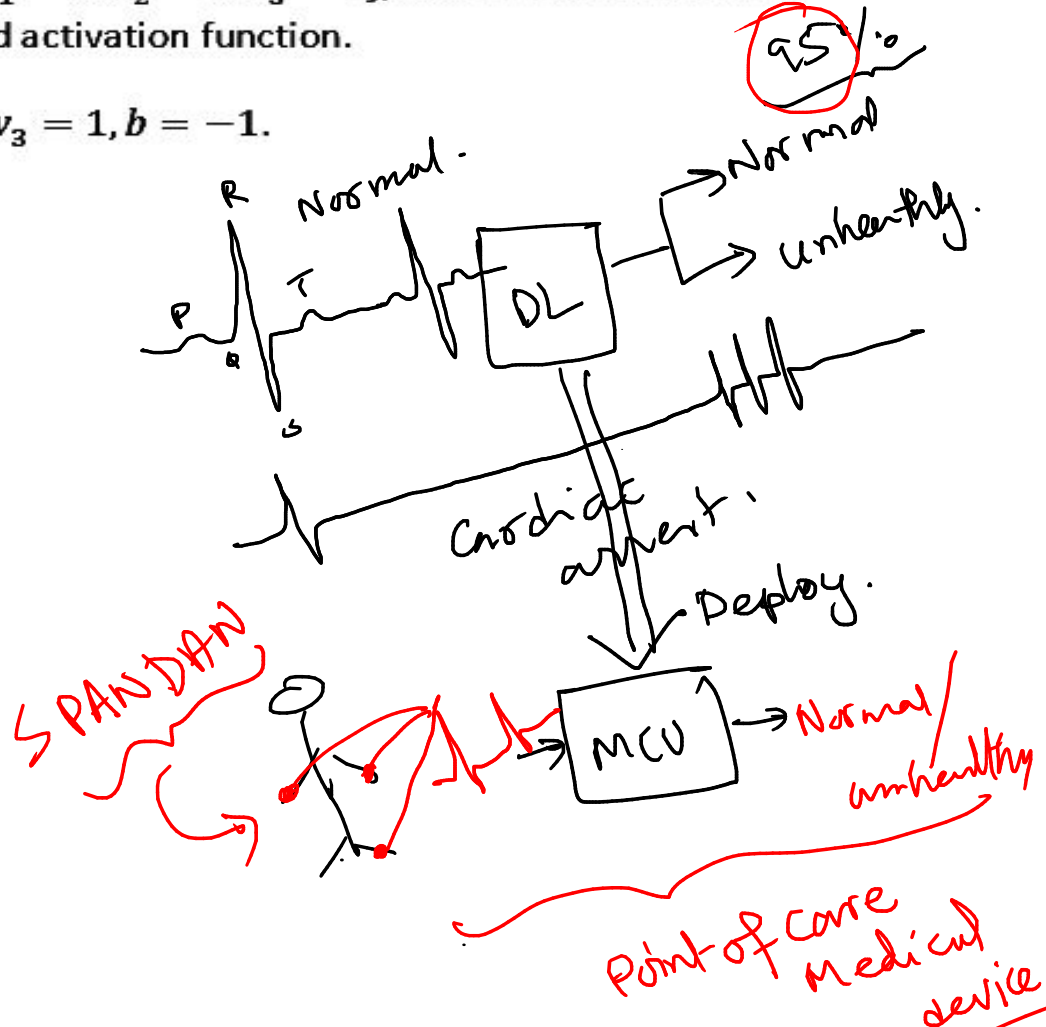 d activation function.
95%
= 1, b = −1.
R
Normal.
Normal
unhealthy.
T
P
DL
Q
S
Cardiac
arrest.
Deploy.
SPANDAN
MCU
Normal/
unhealthy
Point of Care
Medical
device